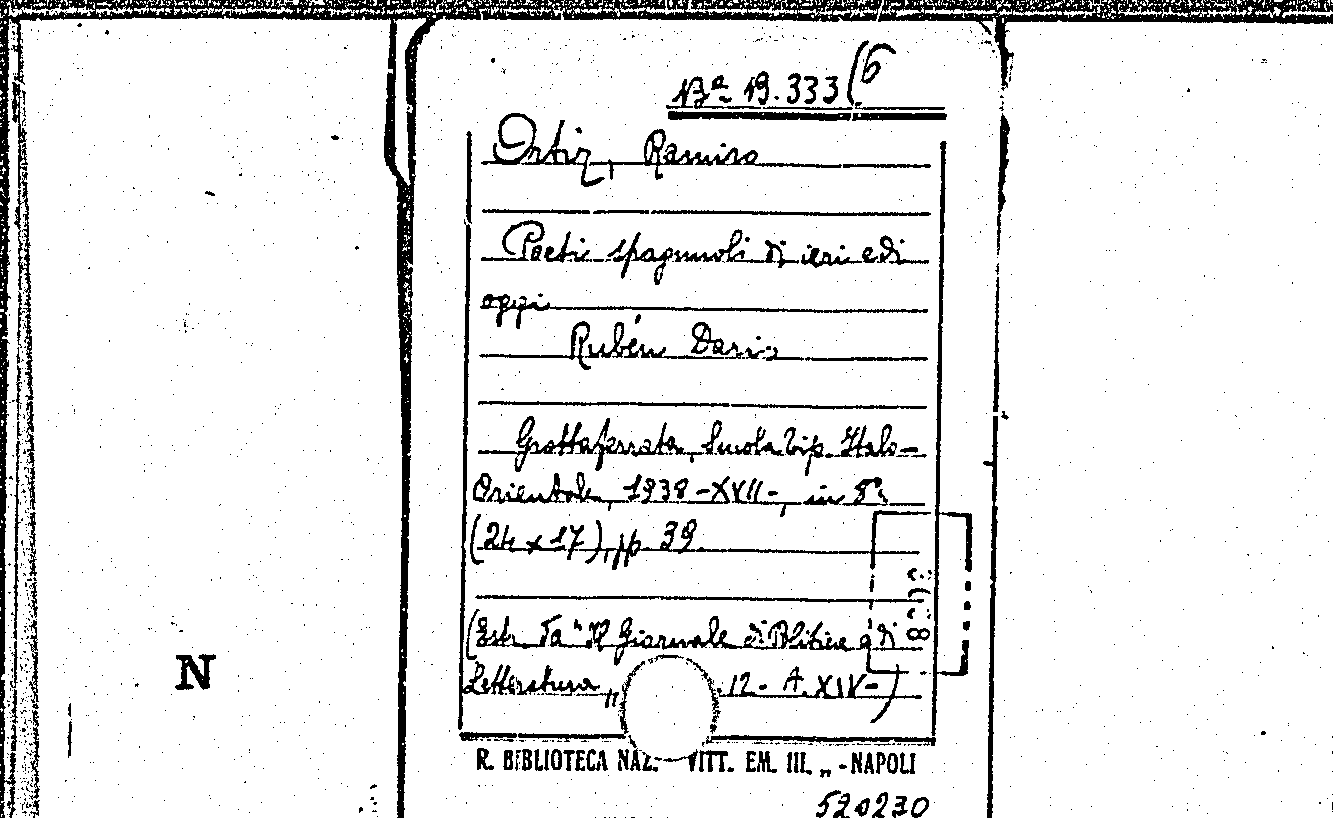 Bª 19.333(6
Ortiz, Ramiro
Poeti spagnuoli di ieri e di
oggi
Rubén Dario
Grottaferrata, Scuola Tip. Italo-
Orientale, 1938-XVII-, in 8°,
(24 x 17), pp. 39.
(Estr. da "Il Giornale di Politica e di
Letteratura„ 12- A. XIV-)
N
R. BIBLIOTECA NAZ. VITT. EM. III. „ - NAPOLI
520230